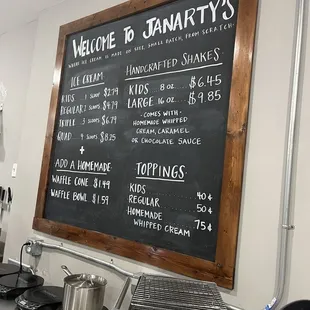 WELCOME TO JANARTY'S
WHERE ICE CREAM IS MADE ON SITE, SMALL BATCH, FROM SCRATCH
ICE CREAM
KIDS 1 SCOOP $2.79
REGULAR 2 SCOOPS $4.79
TRIPLE 3 SCOOPS $6.79
QUAD 4 SCOOPS $8.25
+
ADD A HOMEMADE
WAFFLE CONE $1.49
WAFFLE BOWL $1.59
HANDCRAFTED SHAKES
KIDS 8 OZ. $6.45
LARGE 16 OZ. $9.85
- COMES WITH -
HOMEMADE WHIPPED
CREAM, CARAMEL
OR CHOCOLATE SAUCE
TOPPINGS
KIDS 40¢
REGULAR 50¢
HOMEMADE 75¢
WHIPPED CREAM